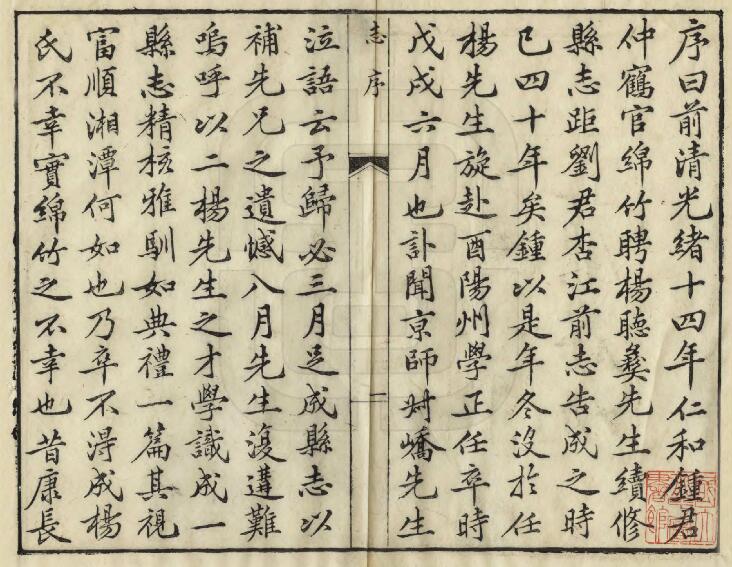 序曰前清光緒十四年仁和鍾君
仲鶴官綿竹聘楊聰彝先生續修
縣志距劉君杏江前志告成之時
已四十年矣鍾以是年冬沒於任
楊先生旋赴酉陽州學正任卒時
戊戌六月也訃聞京師時嶠先生
志序
一
泣語云予歸必三月足成縣志以
補先兄之遺憾八月先生復遘難
嗚呼以二楊先生之才學識成一
縣志精核雅馴如典禮一篇其視
富順湘潭何如也乃卒不淂成楊
氏不幸實綿竹之不幸也昔康長